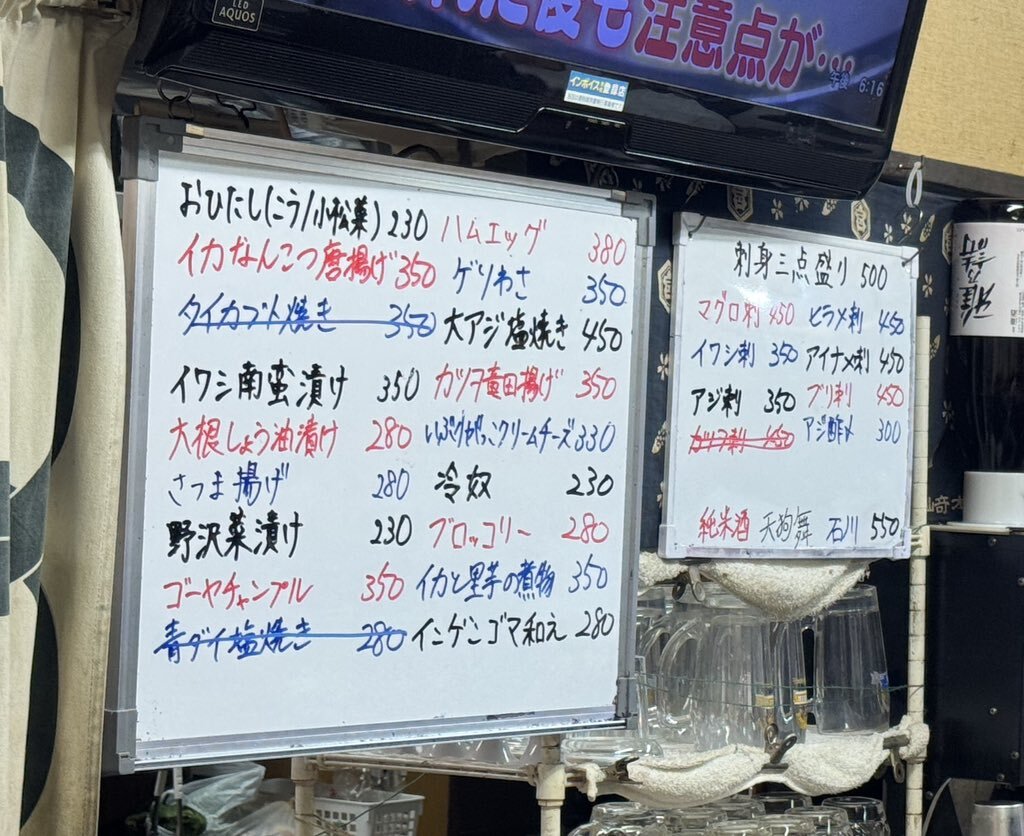 LED
AQUOS
た後も注意点が…
午後 6:16
インボイス 登録店
おひたし(こう/小松菜) 230
イカなんこつ唐揚げ 350
タイカブト焼き 350
イワシ南蛮漬け 350
大根しょう油漬け 280
さつま揚げ 280
野沢菜漬け 230
ゴーヤチャンプル 350
青ダイ塩焼き 280
ハムエッグ 380
ゲソわさ 350
大アジ塩焼き 450
カツヲ竜田揚げ 350
いぶりがっこクリームチーズ 330
冷奴 230
ブロッコリー 280
イカと里芋の煮物 350
インゲンゴマ和え 280
刺身三点盛り 500
マグロ刺 450
イワシ刺 350
アジ刺 350
カツヲ刺 450
ヒラメ刺 450
アイナメ刺 450
ブリ刺 450
アジ酢〆 300
純米酒 天狗舞 石川 550